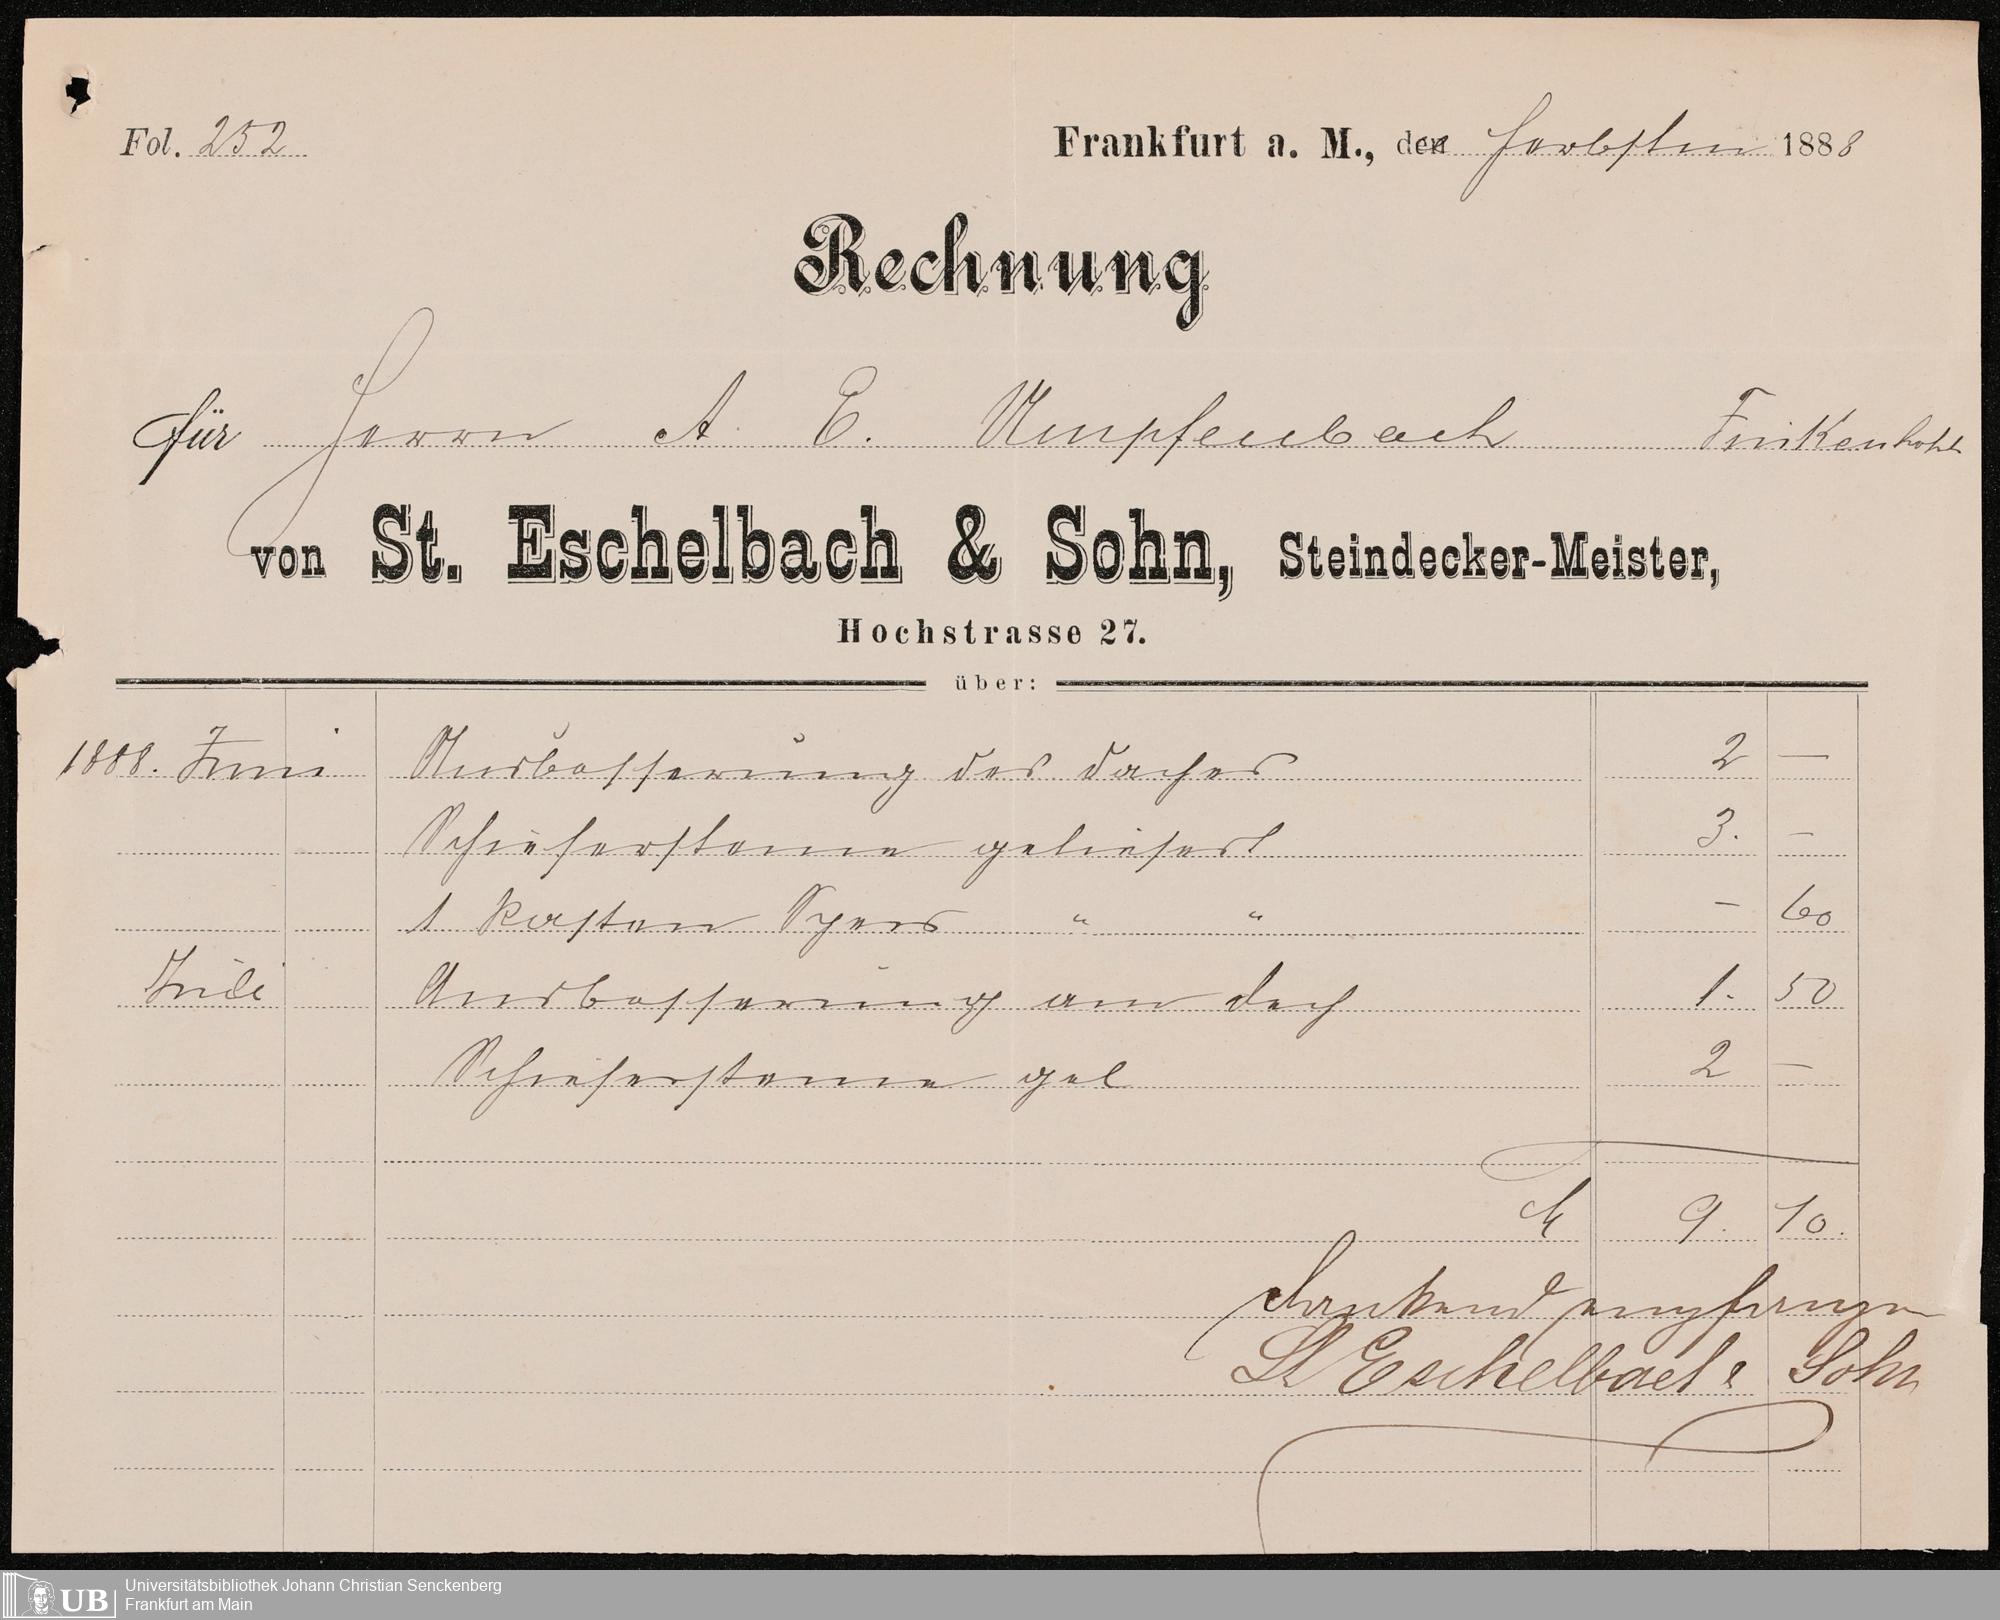 Fol. 252
Frankfurt a. M., den Herbstm 1888
Rechnung
für Herrn A. E. Umpfenbach Finkenhofst
von St. Eschelbach & Sohn, Steindecker-Meister,
Hochstrasse 27.
über:
1888. Juni Ausbesserung des Daches 2 —
Schiefersteine geliefert 3. —
1 Kasten Speis " " — 60
Juli Ausbesserung am Dach 1. 50
Schiefersteine gel 2 —
M 9. 10.
dankend empfangen
St Eschelbach & Sohn
UB Universitätsbibliothek Johann Christian Senckenberg
Frankfurt am Main